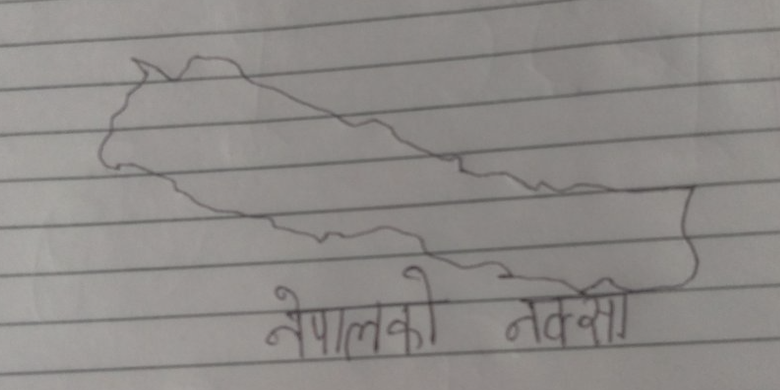 नेपालको नक्सा